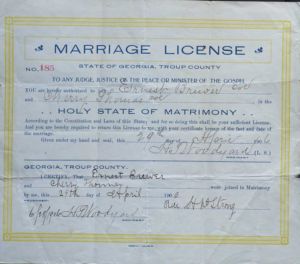 MARRIAGE LICENSE
No. 185 STATE OF GEORGIA, TROUP COUNTY
TO ANY JUDGE, JUSTICE OF THE PEACE OR MINISTER OF THE GOSPEL
YOU are hereby authorized to join Ernest Brewer Col
and Cherry Thomas Col in the
HOLY STATE OF MATRIMONY
According to the Constitution and Laws of this State; and for so doing this shall be your sufficient License.
And you are hereby required to return this License to me, with your certificate hereon of the fact and date
of the marriage.
Given under my hand and seal, this day
H T Woodyard (L. S.)
GEORGIA, TROUP COUNTY.
I CERTIFY, That Ernest Brewer
and Cherry Thomas were joined in Matrimony
by me, this day of April 190
H T Woodyard Rev H W Strong